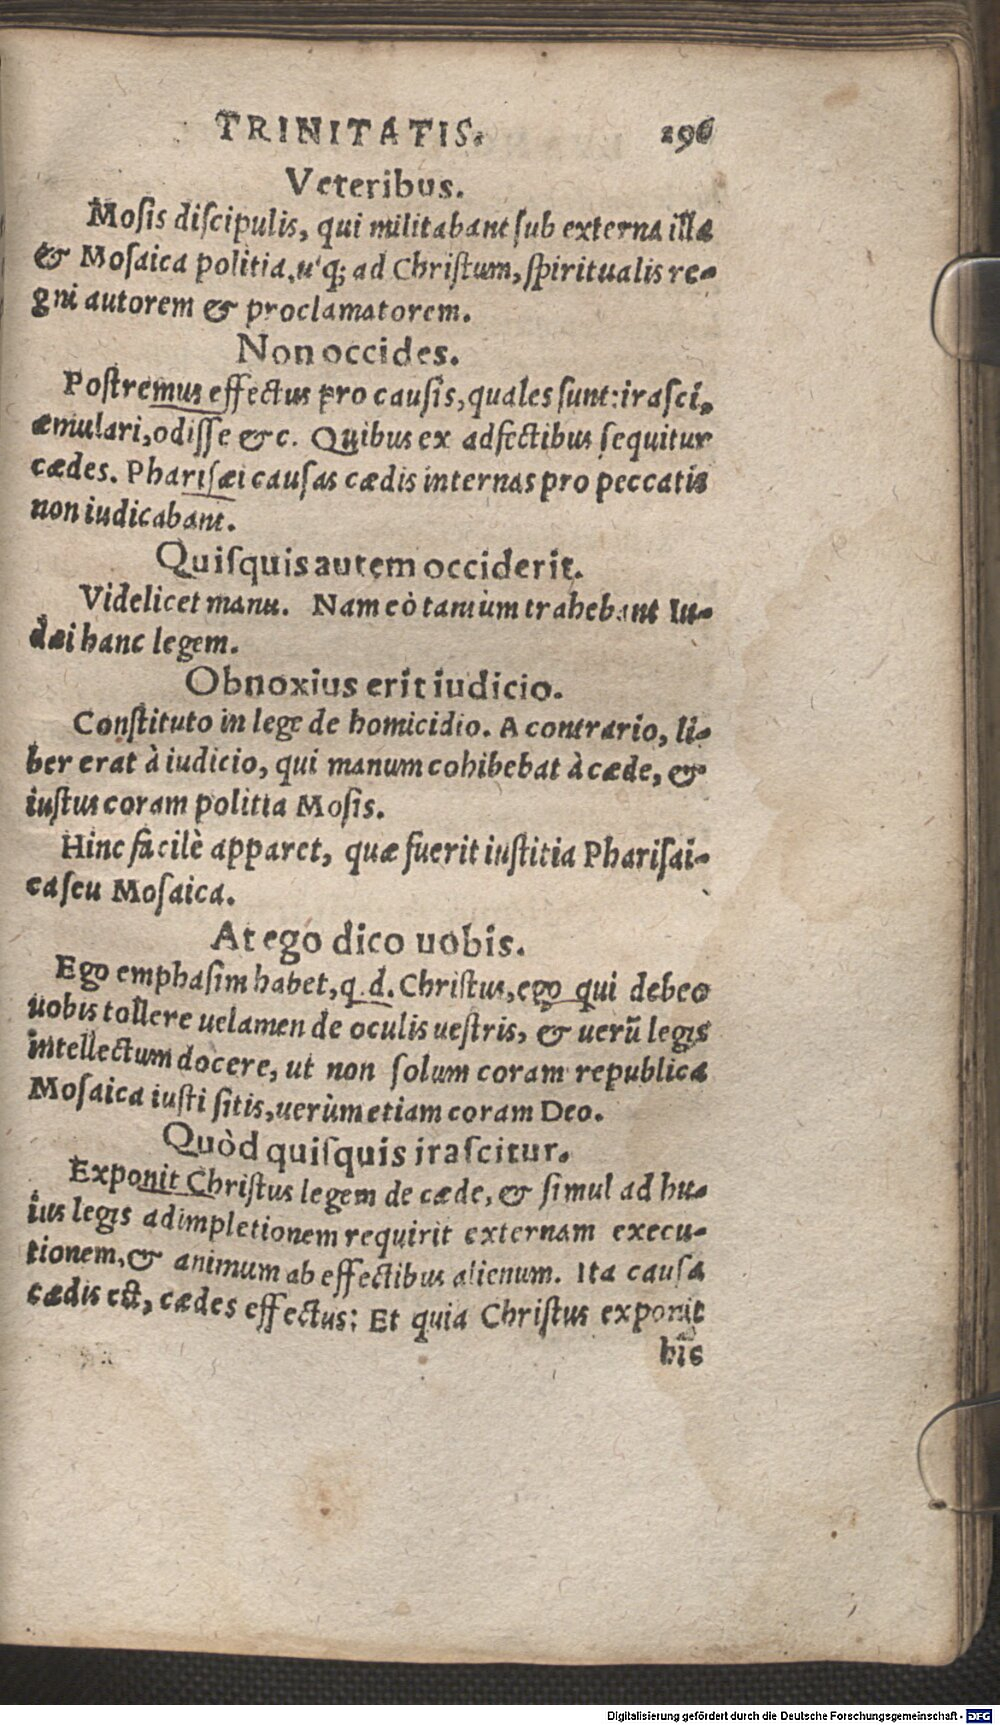 TRINITATIS. 296
Veteribus.
Mosis discipulis, qui militabant sub externa illa
& Mosaica politia, usq; ad Christum, spiritualis re-
gni autorem & proclamatorem.
Non occides.
Postremus effectus pro causis, quales sunt: irasci,
æmulari, odisse &c. Quibus ex adfectibus sequitur
cædes. Pharisæi causas cædis internas pro peccatis
non iudicabant.
Quisquis autem occiderit.
Videlicet manu. Nam eò tantùm trahebant Iu-
dæi hanc legem.
Obnoxius erit iudicio.
Constituto in lege de homicidio. A contrario, li-
ber erat à iudicio, qui manum cohibebat à cæde, &
iustus coram politia Mosis.
Hinc facilè apparet, quæ fuerit iustitia Pharisai-
ca seu Mosaica.
At ego dico uobis.
Ego emphasim habet, q. d. Christus, ego qui debeo
uobis tollere uelamen de oculis uestris, & uerū legis
intellectum docere, ut non solum coram republica
Mosaica iusti sitis, uerùm etiam coram Deo.
Quòd quisquis irascitur.
Exponit Christus legem de cæde, & simul ad hu-
ius legis adimpletionem requirit externam execu-
tionem, & animum ab effectibus alienum. Ita causa
cædis est, cædes effectus: Et quia Christus exponit
his
Digitalisierung gefördert durch die Deutsche Forschungsgemeinschaft - DFG